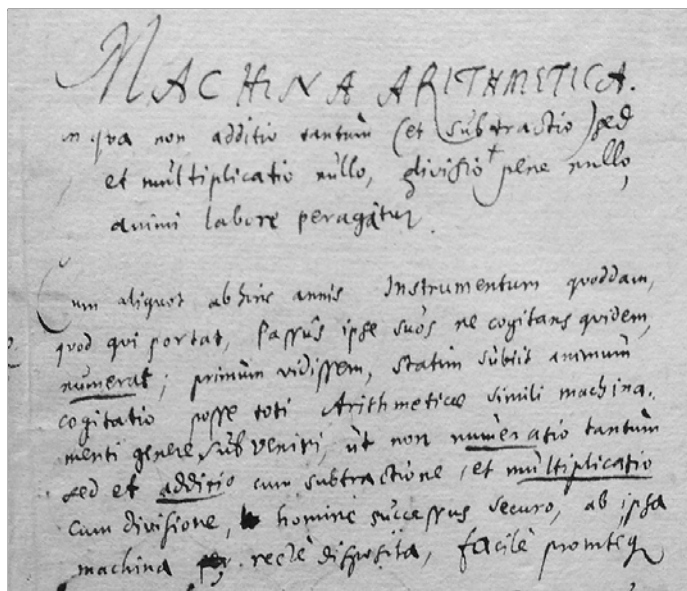 MACHINA ARITHMETICA.
in qva non additio tantùm (et subtractio) sed
et multiplicatio nullo, divisio pene nullo,
animi labore peragatur.
Cum aliquot abhinc annis Instrumentum quoddam,
quod qui portat, passus ipse suos ne cogitans quidem,
numerat; primùm vidissem, statim subiit animum
cogitatio posse toti Arithmeticæ simili machina-
menti genere subveniri, ut non numeratio tantùm
sed et additio cum subtractione, et multiplicatio
cum divisione, homine successus securo, ab ipsa
machina recte disposita, facile